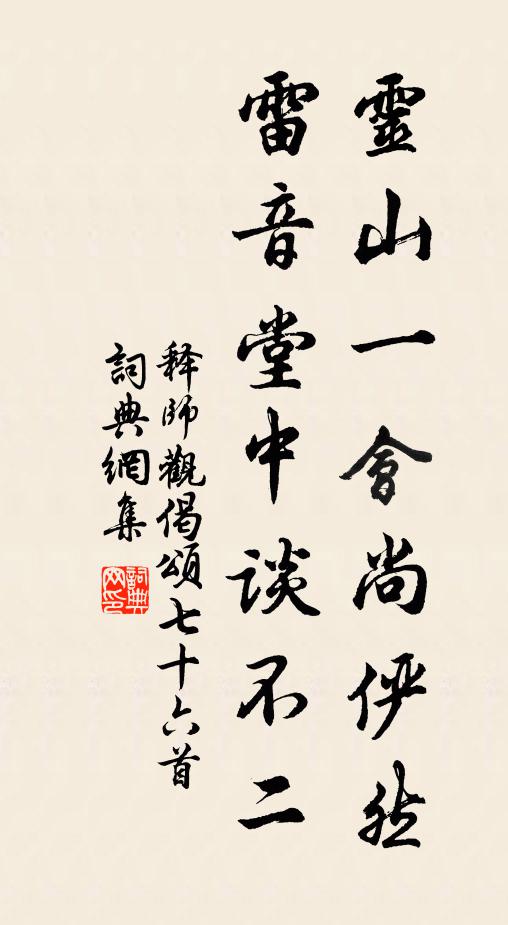 靈山一會尚儼然
雷音堂中談不二
釋師觀偈頌七十六首
詞典網集
詞典网印